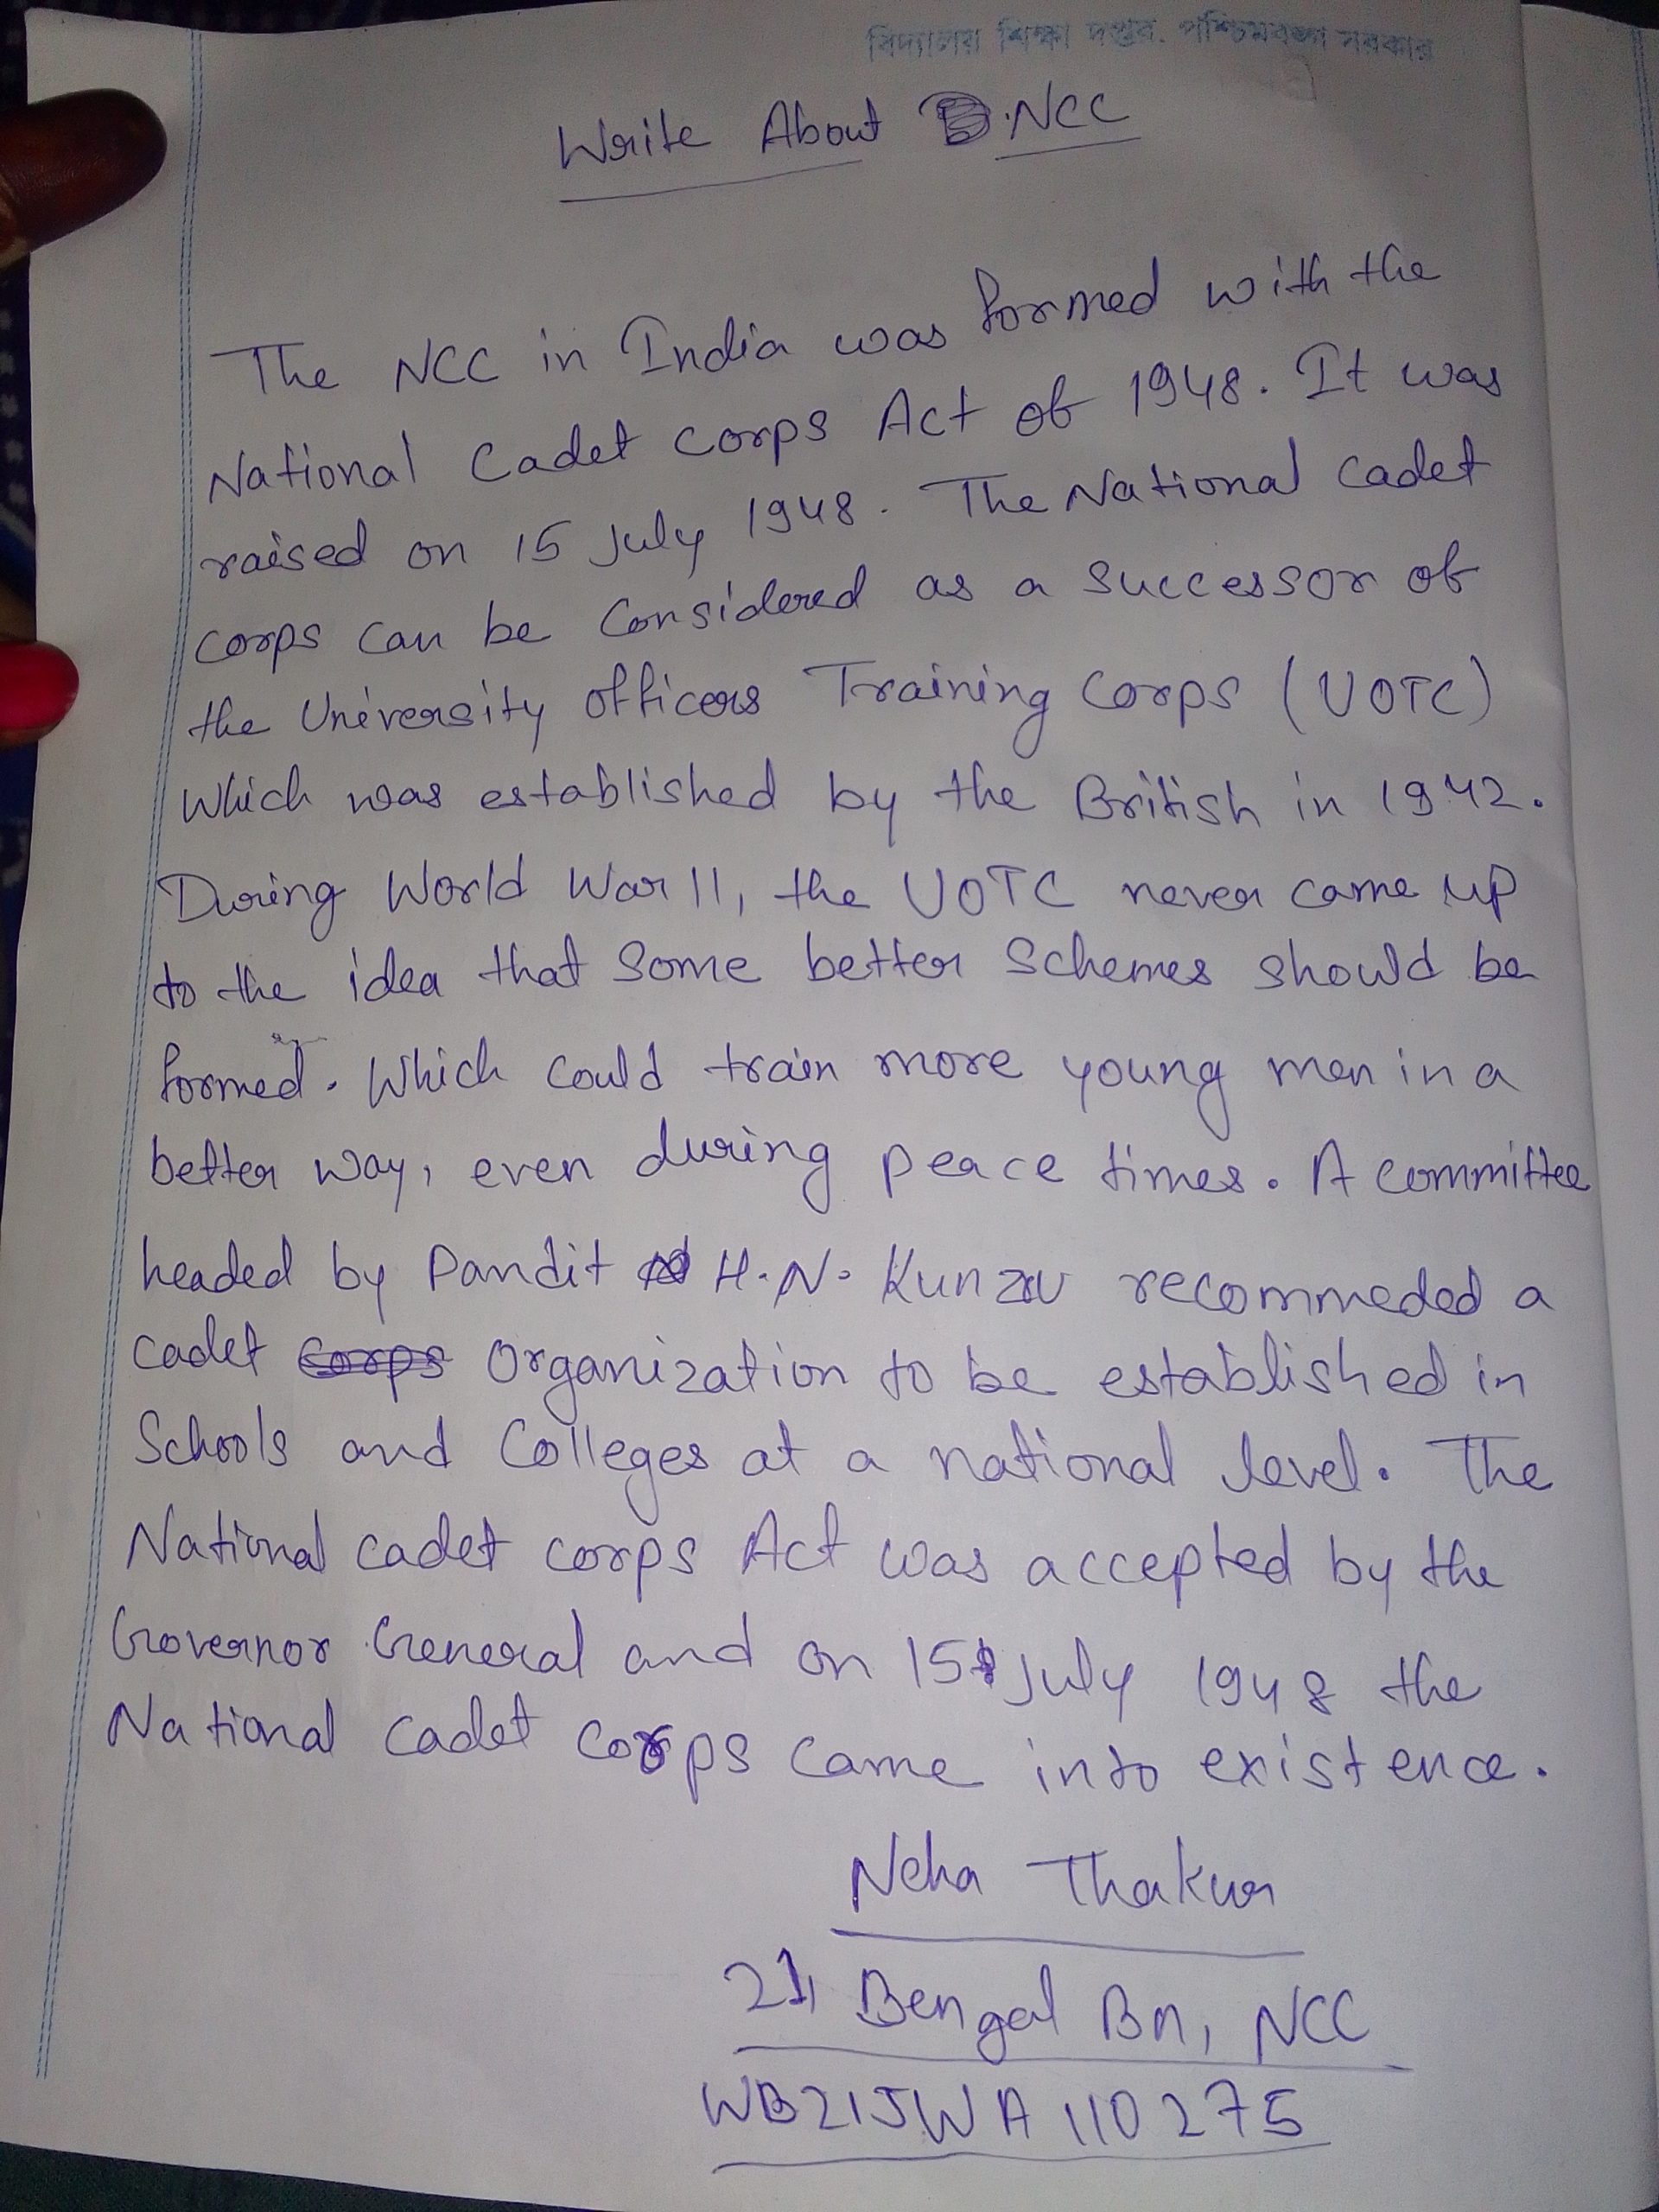 বিদ্যালয় শিক্ষা দপ্তর. পশ্চিমবঙ্গ সরকার
Write About NCC
The NCC in India was formed with the
National Cadet Corps Act of 1948. It was
raised on 15 July 1948. The National Cadet
corps can be Considered as a successor of
the University officers Training Corps (UOTC)
Which was established by the British in 1942.
During World War II, the UOTC never came up
to the idea that Some better Schemes should be
formed. Which could train more young men in a
better way, even during peace times. A committee
headed by Pandit H.N. Kunzru recommeded a
cadet Organization to be established in
Schools and Colleges at a national level. The
National cadet corps Act was accepted by the
Governor General and on 15 July 1948 the
National cadet corps came into existence.
Neha Thakur
21 Bengal Bn, NCC
WB21JWA110275